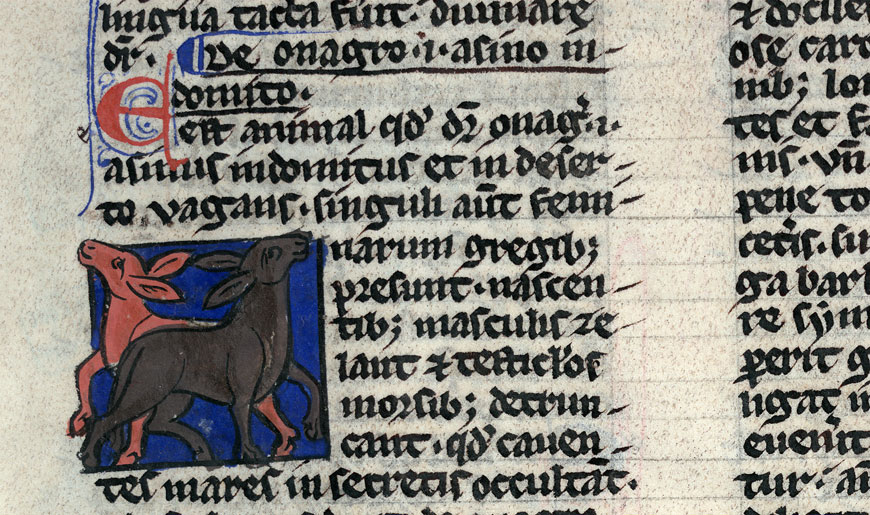 lingua tacta sūt. diuinare
dr̄. De onagro .i. asino in-
domito.
Est animal qd' dr̄ onagr̄ .i.
asinus indomitus et in deser-
to vagans. singuli aūt femi-
narum gregib;
presunt. nascen-
tib; masculis ze-
lant ⁊ testiclos
morsib; detrun-
cant. qd' cauen-
tes mares in secretis occultāt.
⁊ docile
ose car
nib; lo
tes et f
nis. vn̄
pene to
ceter̄is. su
ga barb
re sym
perit g
ligat i
euenit
tur. an